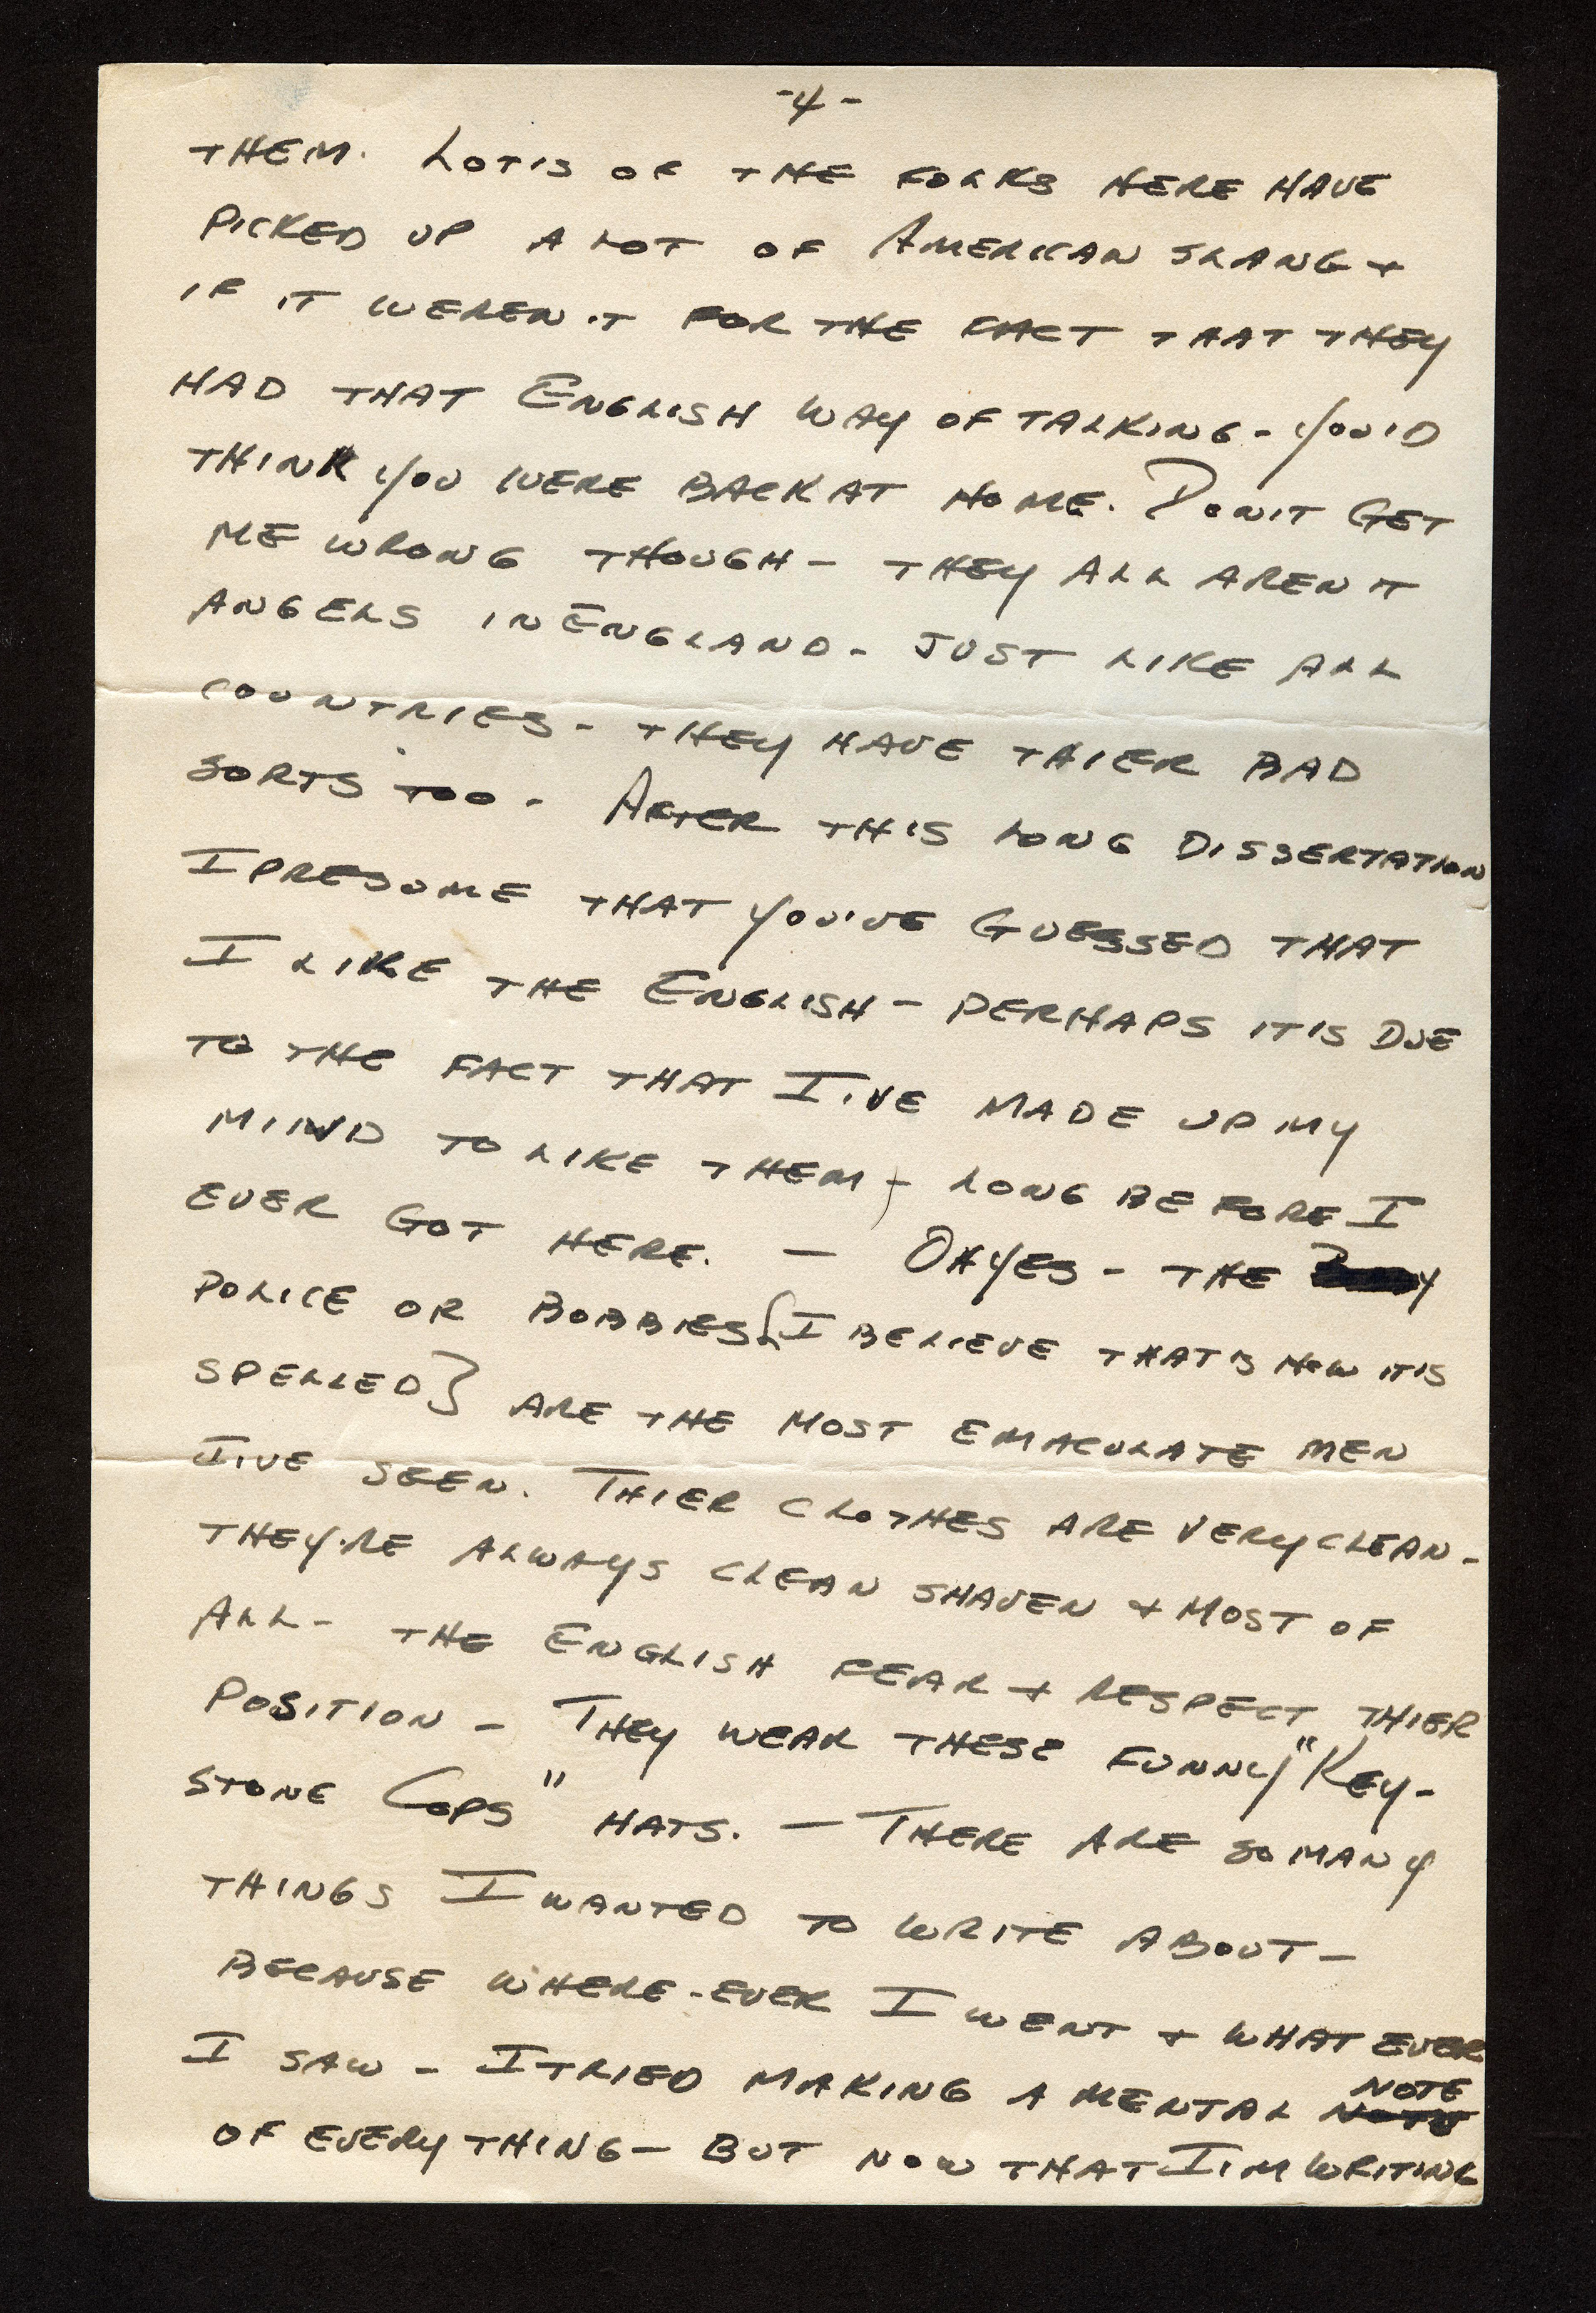 -4-
THEM. LOT'S OF THE FOLKS HERE HAVE
PICKED UP A LOT OF AMERICAN SLANG +
IF IT WEREN'T FOR THE FACT THAT THEY
HAD THAT ENGLISH WAY OF TALKING - YOU'D
THINK YOU WERE BACK AT HOME. DON'T GET
ME WRONG THOUGH - THEY ALL AREN'T
ANGELS IN ENGLAND - JUST LIKE ALL
COUNTRIES - THEY HAVE THIER BAD
SORTS TOO - AFTER THIS LONG DISSERTATION
I PRESUME THAT YOU'VE GUESSED THAT
I LIKE THE ENGLISH - PERHAPS IT'S DUE
TO THE FACT THAT I'VE MADE UP MY
MIND TO LIKE THEM, - LONG BEFORE I
EVER GOT HERE. — OH YES - THE
POLICE OR BOBBIES {I BELIEVE THAT'S HOW IT'S
SPELLED} ARE THE MOST EMACULATE MEN
I'VE SEEN. THIER CLOTHES ARE VERY CLEAN -
THEY'RE ALWAYS CLEAN SHAVEN + MOST OF
ALL - THE ENGLISH FEAR + RESPECT THIER
POSITION - THEY WEAR THESE FUNNY "KEY-
STONE COPS" HATS. — THERE ARE SO MANY
THINGS I WANTED TO WRITE ABOUT -
BECAUSE WHERE-EVER I WENT + WHAT EVER
I SAW - I TRIED MAKING A MENTAL NOTE
OF EVERYTHING - BUT NOW THAT I'M WRITING